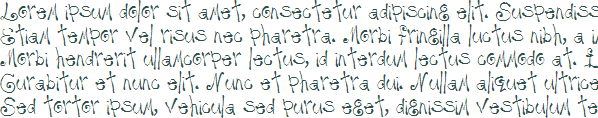 Lorem ipsum dolor sit amet, consectetur adipiscing elit. Suspendiss
Etiam tempor vel risus nec pharetra. Morbi fringilla luctus nibh, a
Morbi hendrerit ullamcorper lectus, id interdum lectus commodo at.
Curabitur et nunc elit. Nunc et pharetra dui. Nullam aliquet ultrice
Sed tortor ipsum, vehicula sed purus eget, dignissim vestibulum te